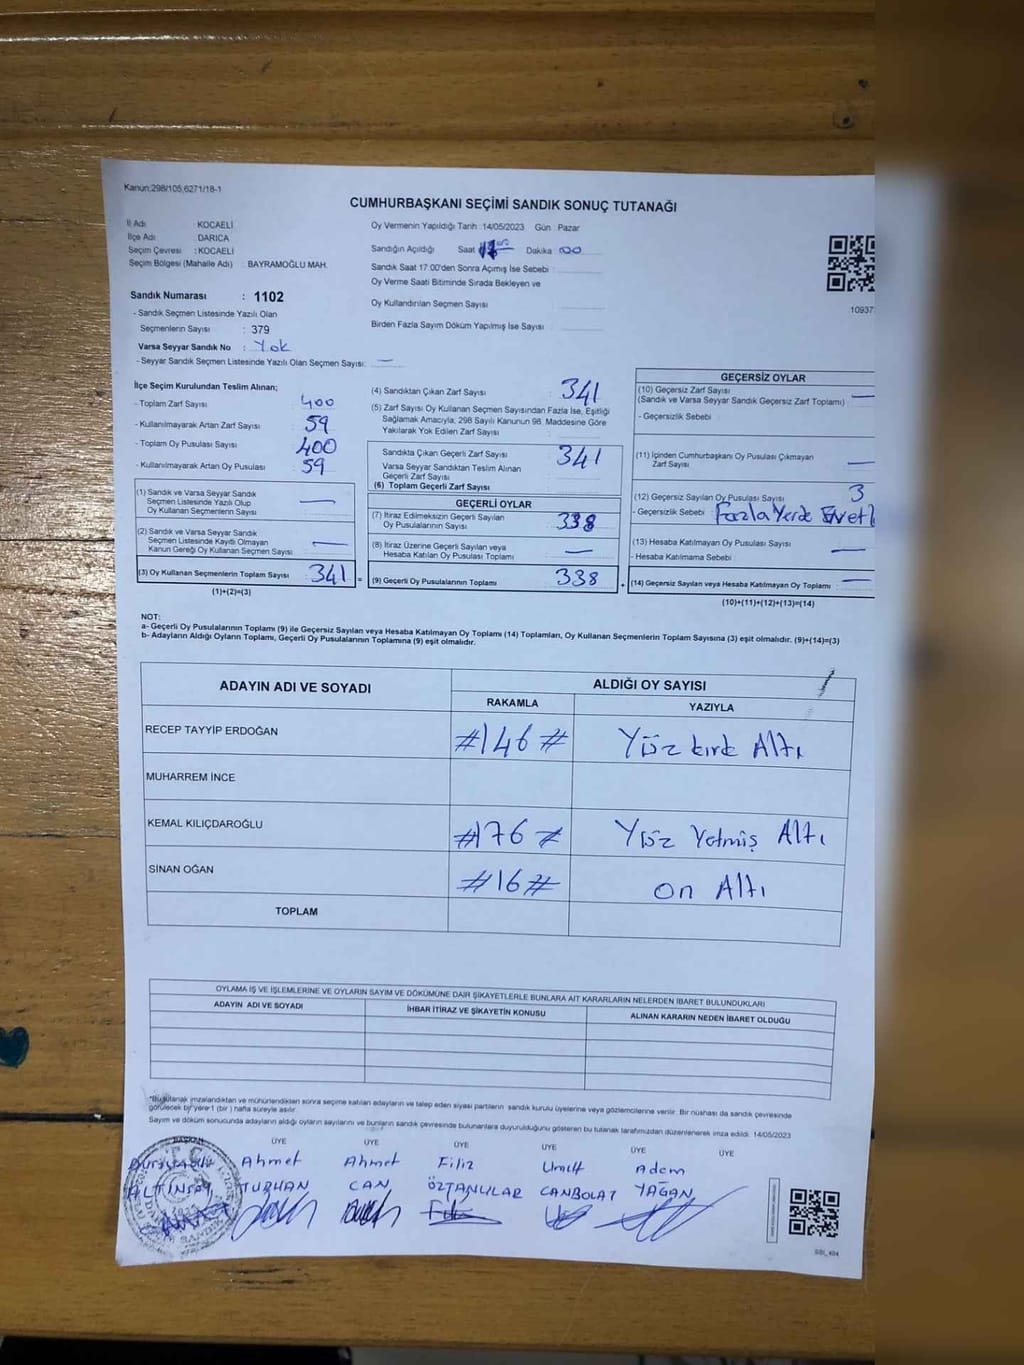 Kanun:298/105,6271/18-1
CUMHURBAŞKANI SEÇİMİ SANDIK SONUÇ TUTANAĞI
İl Adı KOCAELİ
İlçe Adı DARICA
Seçim Çevresi : KOCAELİ
Seçim Bölgesi (Mahalle Adı) : BAYRAMOĞLU MAH.
Sandık Numarası : 1102
- Sandık Seçmen Listesinde Yazılı Olan
Seçmenlerin Sayısı : 379
Varsa Seyyar Sandık No : Yok
- Seyyar Sandık Seçmen Listesinde Yazılı Olan Seçmen Sayısı: —
Oy Vermenin Yapıldığı Tarih :14/05/2023 Gün : Pazar
Sandığın Açıldığı Saat Dakika :00
Sandık Saat 17:00'den Sonra Açımış İse Sebebi :
Oy Verme Saati Bitiminde Sırada Bekleyen ve
Oy Kullandırılan Seçmen Sayısı :
Birden Fazla Sayım Döküm Yapılmış İse Sayısı :
10937
İlçe Seçim Kurulundan Teslim Alınan;
- Toplam Zarf Sayısı : 400
- Kullanılmayarak Artan Zarf Sayısı : 59
- Toplam Oy Pusulası Sayısı : 400
- Kullanılmayarak Artan Oy Pusulası : 59
(1) Sandık ve Varsa Seyyar Sandık
Seçmen Listesinde Yazılı Olup
Oy Kullanan Seçmenlerin Sayısı : —
(2) Sandık ve Varsa Seyyar Sandık
Seçmen Listesinde Kayıtlı Olmayan
Kanun Gereği Oy Kullanan Seçmen Sayısı : —
(3) Oy Kullanan Seçmenlerin Toplam Sayısı : 341 =
(1)+(2)=(3)
(4) Sandıktan Çıkan Zarf Sayısı : 341
(5) Zarf Sayısı Oy Kullanan Seçmen Sayısından Fazla İse, Eşitliği
Sağlamak Amacıyla; 298 Sayılı Kanunun 98. Maddesine Göre
Yakılarak Yok Edilen Zarf Sayısı :
Sandıkta Çıkan Geçerli Zarf Sayısı : 341
Varsa Seyyar Sandıktan Teslim Alınan
Geçerli Zarf Sayısı :
(6) Toplam Geçerli Zarf Sayısı :
GEÇERLİ OYLAR
(7) İtiraz Edilmeksizin Geçerli Sayılan
Oy Pusulalarının Sayısı : 338
(8) İtiraz Üzerine Geçerli Sayılan veya
Hesaba Katılan Oy Pusulası Toplamı : —
(9) Geçerli Oy Pusulalarının Toplamı : 338 +
GEÇERSİZ OYLAR
(10) Geçersiz Zarf Sayısı : —
(Sandık ve Varsa Seyyar Sandık Geçersiz Zarf Toplamı)
- Geçersizlik Sebebi :
(11) İçinden Cumhurbaşkanı Oy Pusulası Çıkmayan
Zarf Sayısı : —
(12) Geçersiz Sayılan Oy Pusulası Sayısı : 3
- Geçersizlik Sebebi : Fazla Yerde Evet
(13) Hesaba Katılmayan Oy Pusulası Sayısı : —
- Hesaba Katılmama Sebebi :
(14) Geçersiz Sayılan veya Hesaba Katılmayan Oy Toplamı : —
(10)+(11)+(12)+(13)=(14)
NOT:
a- Geçerli Oy Pusulalarının Toplamı (9) ile Geçersiz Sayılan veya Hesaba Katılmayan Oy Toplamı (14) Toplamları, Oy Kullanan Seçmenlerin Toplam Sayısına (3) eşit olmalıdır. (9)+(14)=(3)
b- Adayların Aldığı Oyların Toplamı, Geçerli Oy Pusulalarının Toplamına (9) eşit olmalıdır.
ADAYIN ADI VE SOYADI ALDIĞI OY SAYISI
RAKAMLA YAZIYLA
RECEP TAYYİP ERDOĞAN #146# Yüz kırk Altı
MUHARREM İNCE
KEMAL KILIÇDAROĞLU #176# Yüz Yetmiş Altı
SİNAN OĞAN #16# on Altı
TOPLAM
OYLAMA İŞ VE İŞLEMLERİNE VE OYLARIN SAYIM VE DÖKÜMÜNE DAİR ŞİKAYETLERLE BUNLARA AİT KARARLARIN NELERDEN İBARET BULUNDUKLARI
ADAYIN ADI VE SOYADI İHBAR İTİRAZ VE ŞİKAYETİN KONUSU ALINAN KARARIN NEDEN İBARET OLDUĞU
*Bu tutanak imzalandıktan ve mühürlendikten sonra seçime katılan adayların ve talep eden siyasi partilerin sandık kurulu üyelerine veya gözlemcilerine verilir. Bir nüshası da sandık çevresinde
görülecek bir yere 1 (bir ) hafta süreyle asılır.
Sayım ve döküm sonucunda adayların aldığı oyların sayılarını ve bunların sandık çevresinde bulunanlara duyurulduğunu gösteren bu tutanak tarafımızdan düzenlenerek imza edildi. 14/05/2023
BAŞKAN ÜYE ÜYE ÜYE ÜYE ÜYE ÜYE
Ahmet Ahmet Filiz Umut Adem
ALTINSOY TURHAN CAN ÖZTANLILAR CANBOLAT YAĞAN